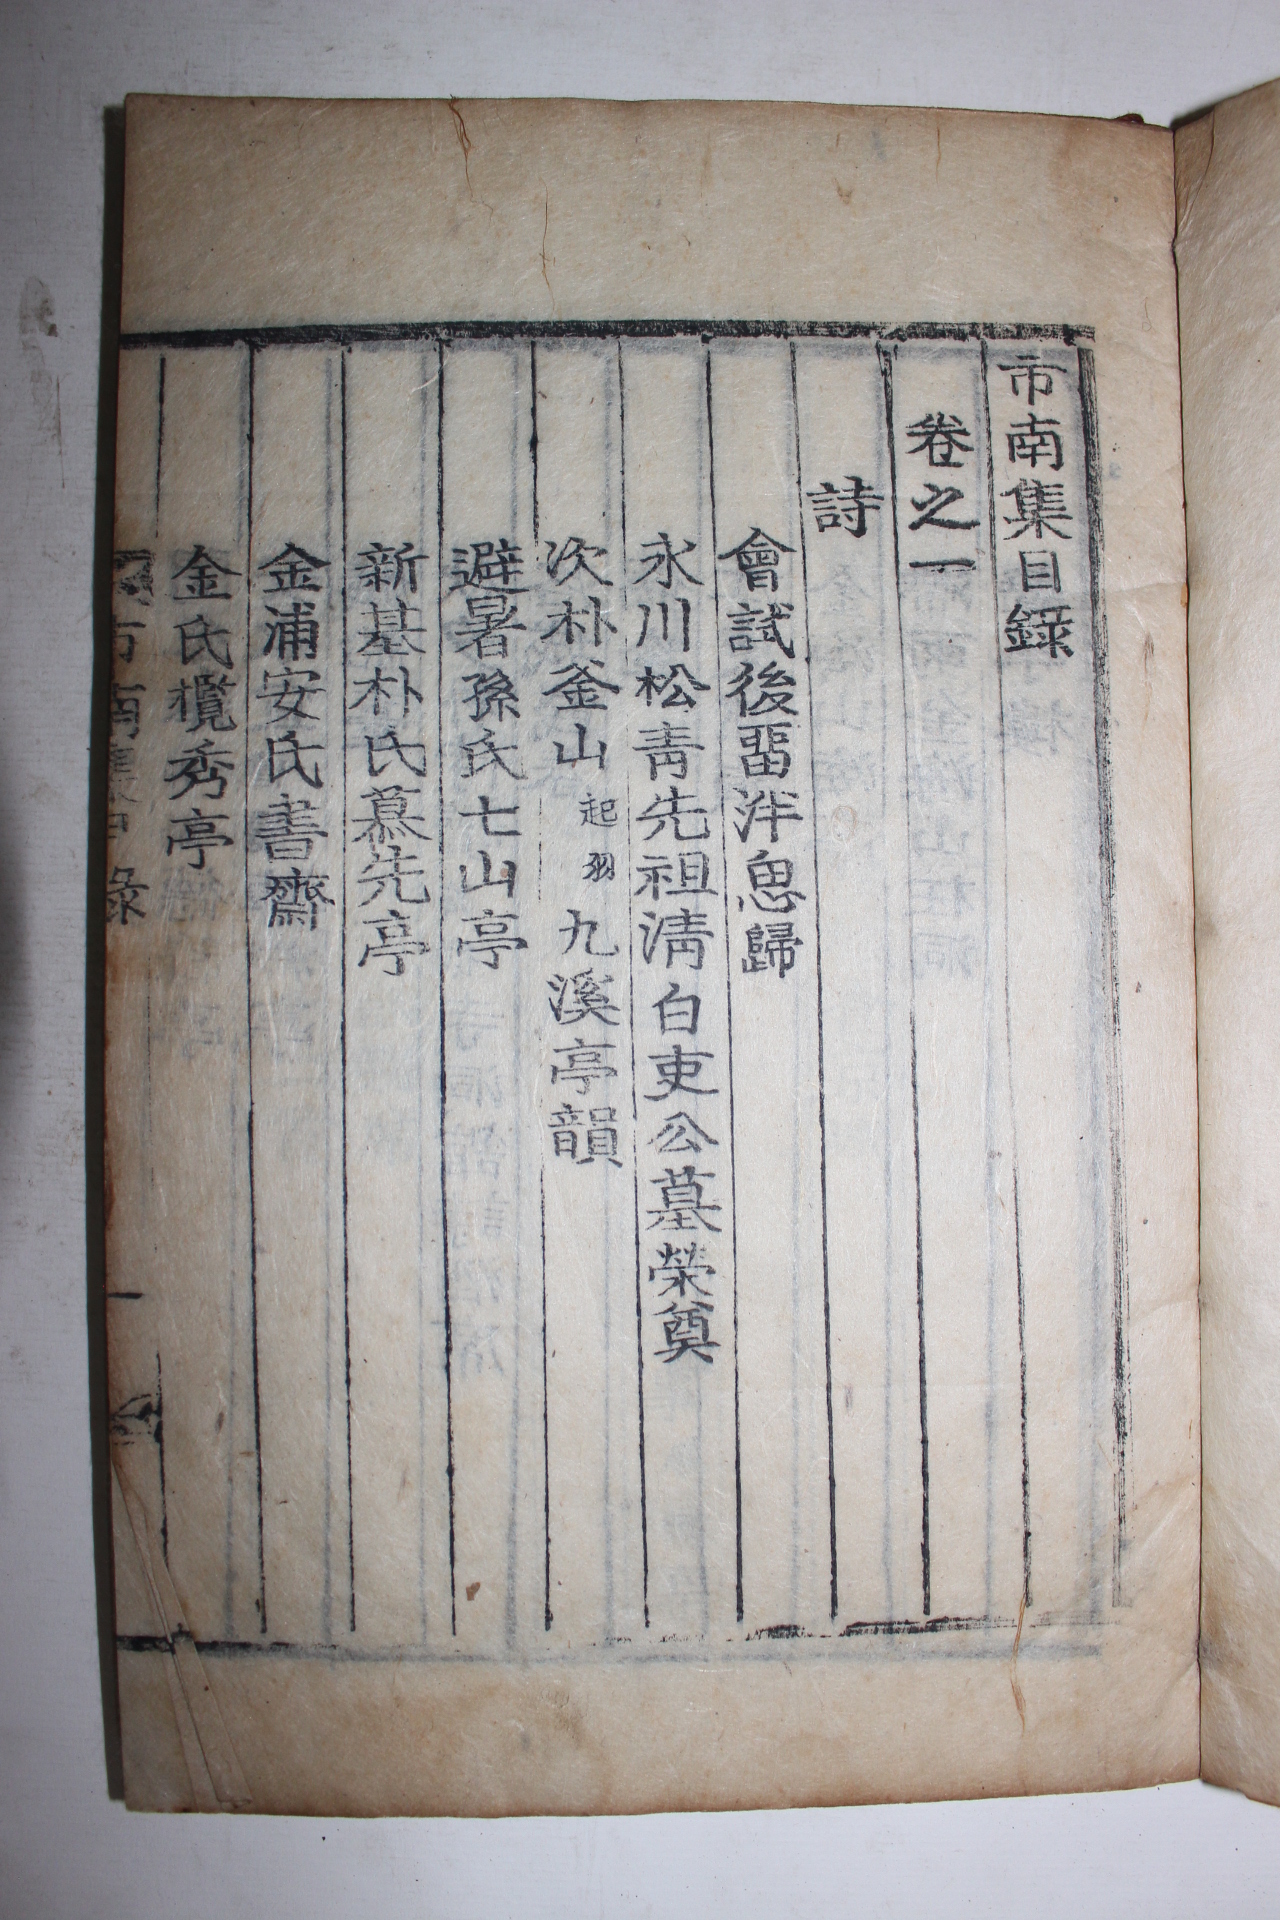 市南集目錄
卷之一
詩
會試後畱泮思歸
永川松青先祖淸白吏公墓榮奠
次朴釜山起羽九溪亭韻
避暑孫氏七山亭
新基朴氏慕先亭
金浦安氏書齋
金氏欖秀亭
市南集目錄
一